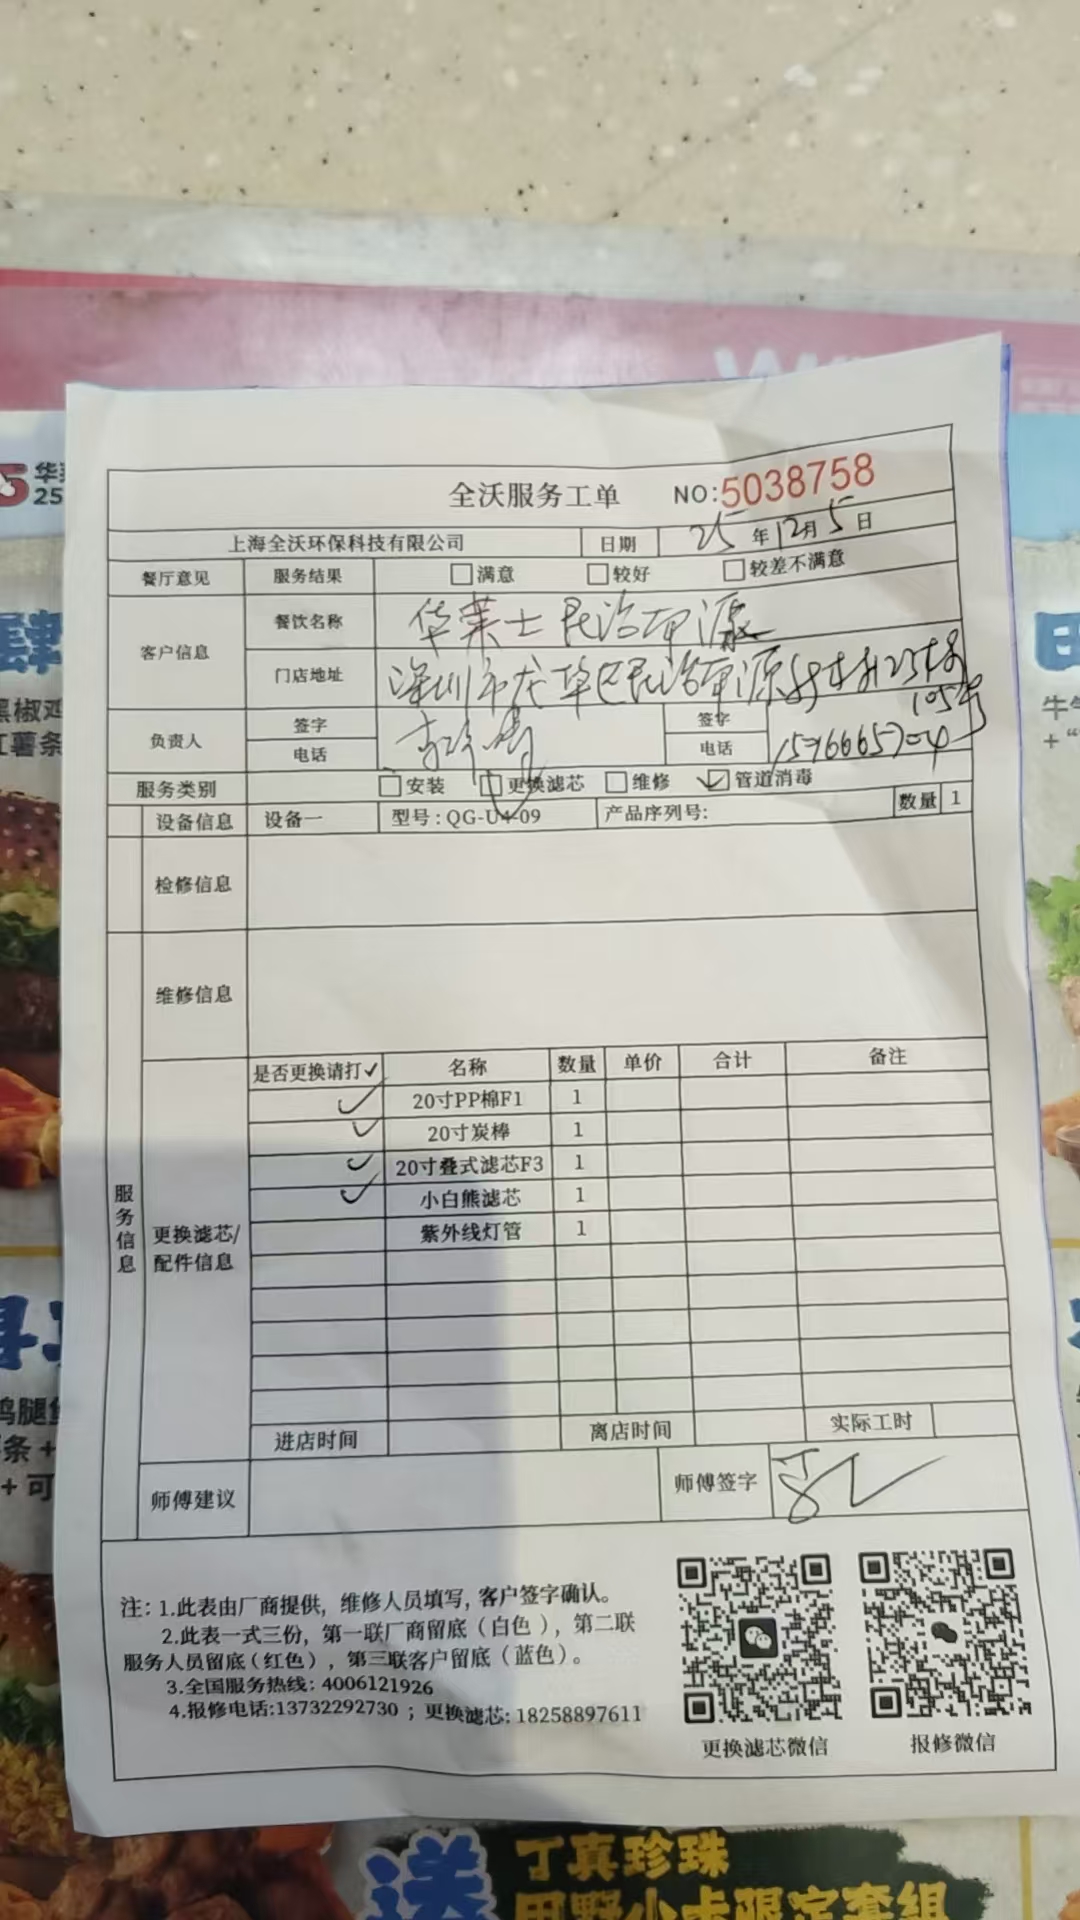 全沃服务工单 NO:5038758
上海全沃环保科技有限公司 日期 25年12月5日
餐厅意见 服务结果 满意 较好 较差不满意
客户信息 餐饮名称 华莱士民治草源
门店地址 深圳市龙华区民治草源 23栋
105号
负责人 签字 签字
电话 电话
服务类别 安装 更换滤芯 维修 管道消毒
设备信息 设备一 型号:QG-U4-09 产品序列号: 数量 1
检修信息
维修信息
服务信息
更换滤芯/配件信息
是否更换请打✓ 名称 数量 单价 合计 备注
✓ 20寸PP棉F1 1
✓ 20寸炭棒 1
✓ 20寸叠式滤芯F3 1
✓ 小白熊滤芯 1
紫外线灯管 1
进店时间 离店时间 实际工时
师傅建议 师傅签字
注: 1.此表由厂商提供, 维修人员填写, 客户签字确认。
2.此表一式三份, 第一联厂商留底(白色), 第二联
服务人员留底(红色), 第三联客户留底(蓝色)。
3.全国服务热线: 4006121926
4.报修电话:13732292730 ; 更换滤芯: 18258897611
更换滤芯微信 报修微信
黑椒鸡
红薯条
鸡腿
条+
+可
牛
送
丁真珍珠
田野小卡限定套组